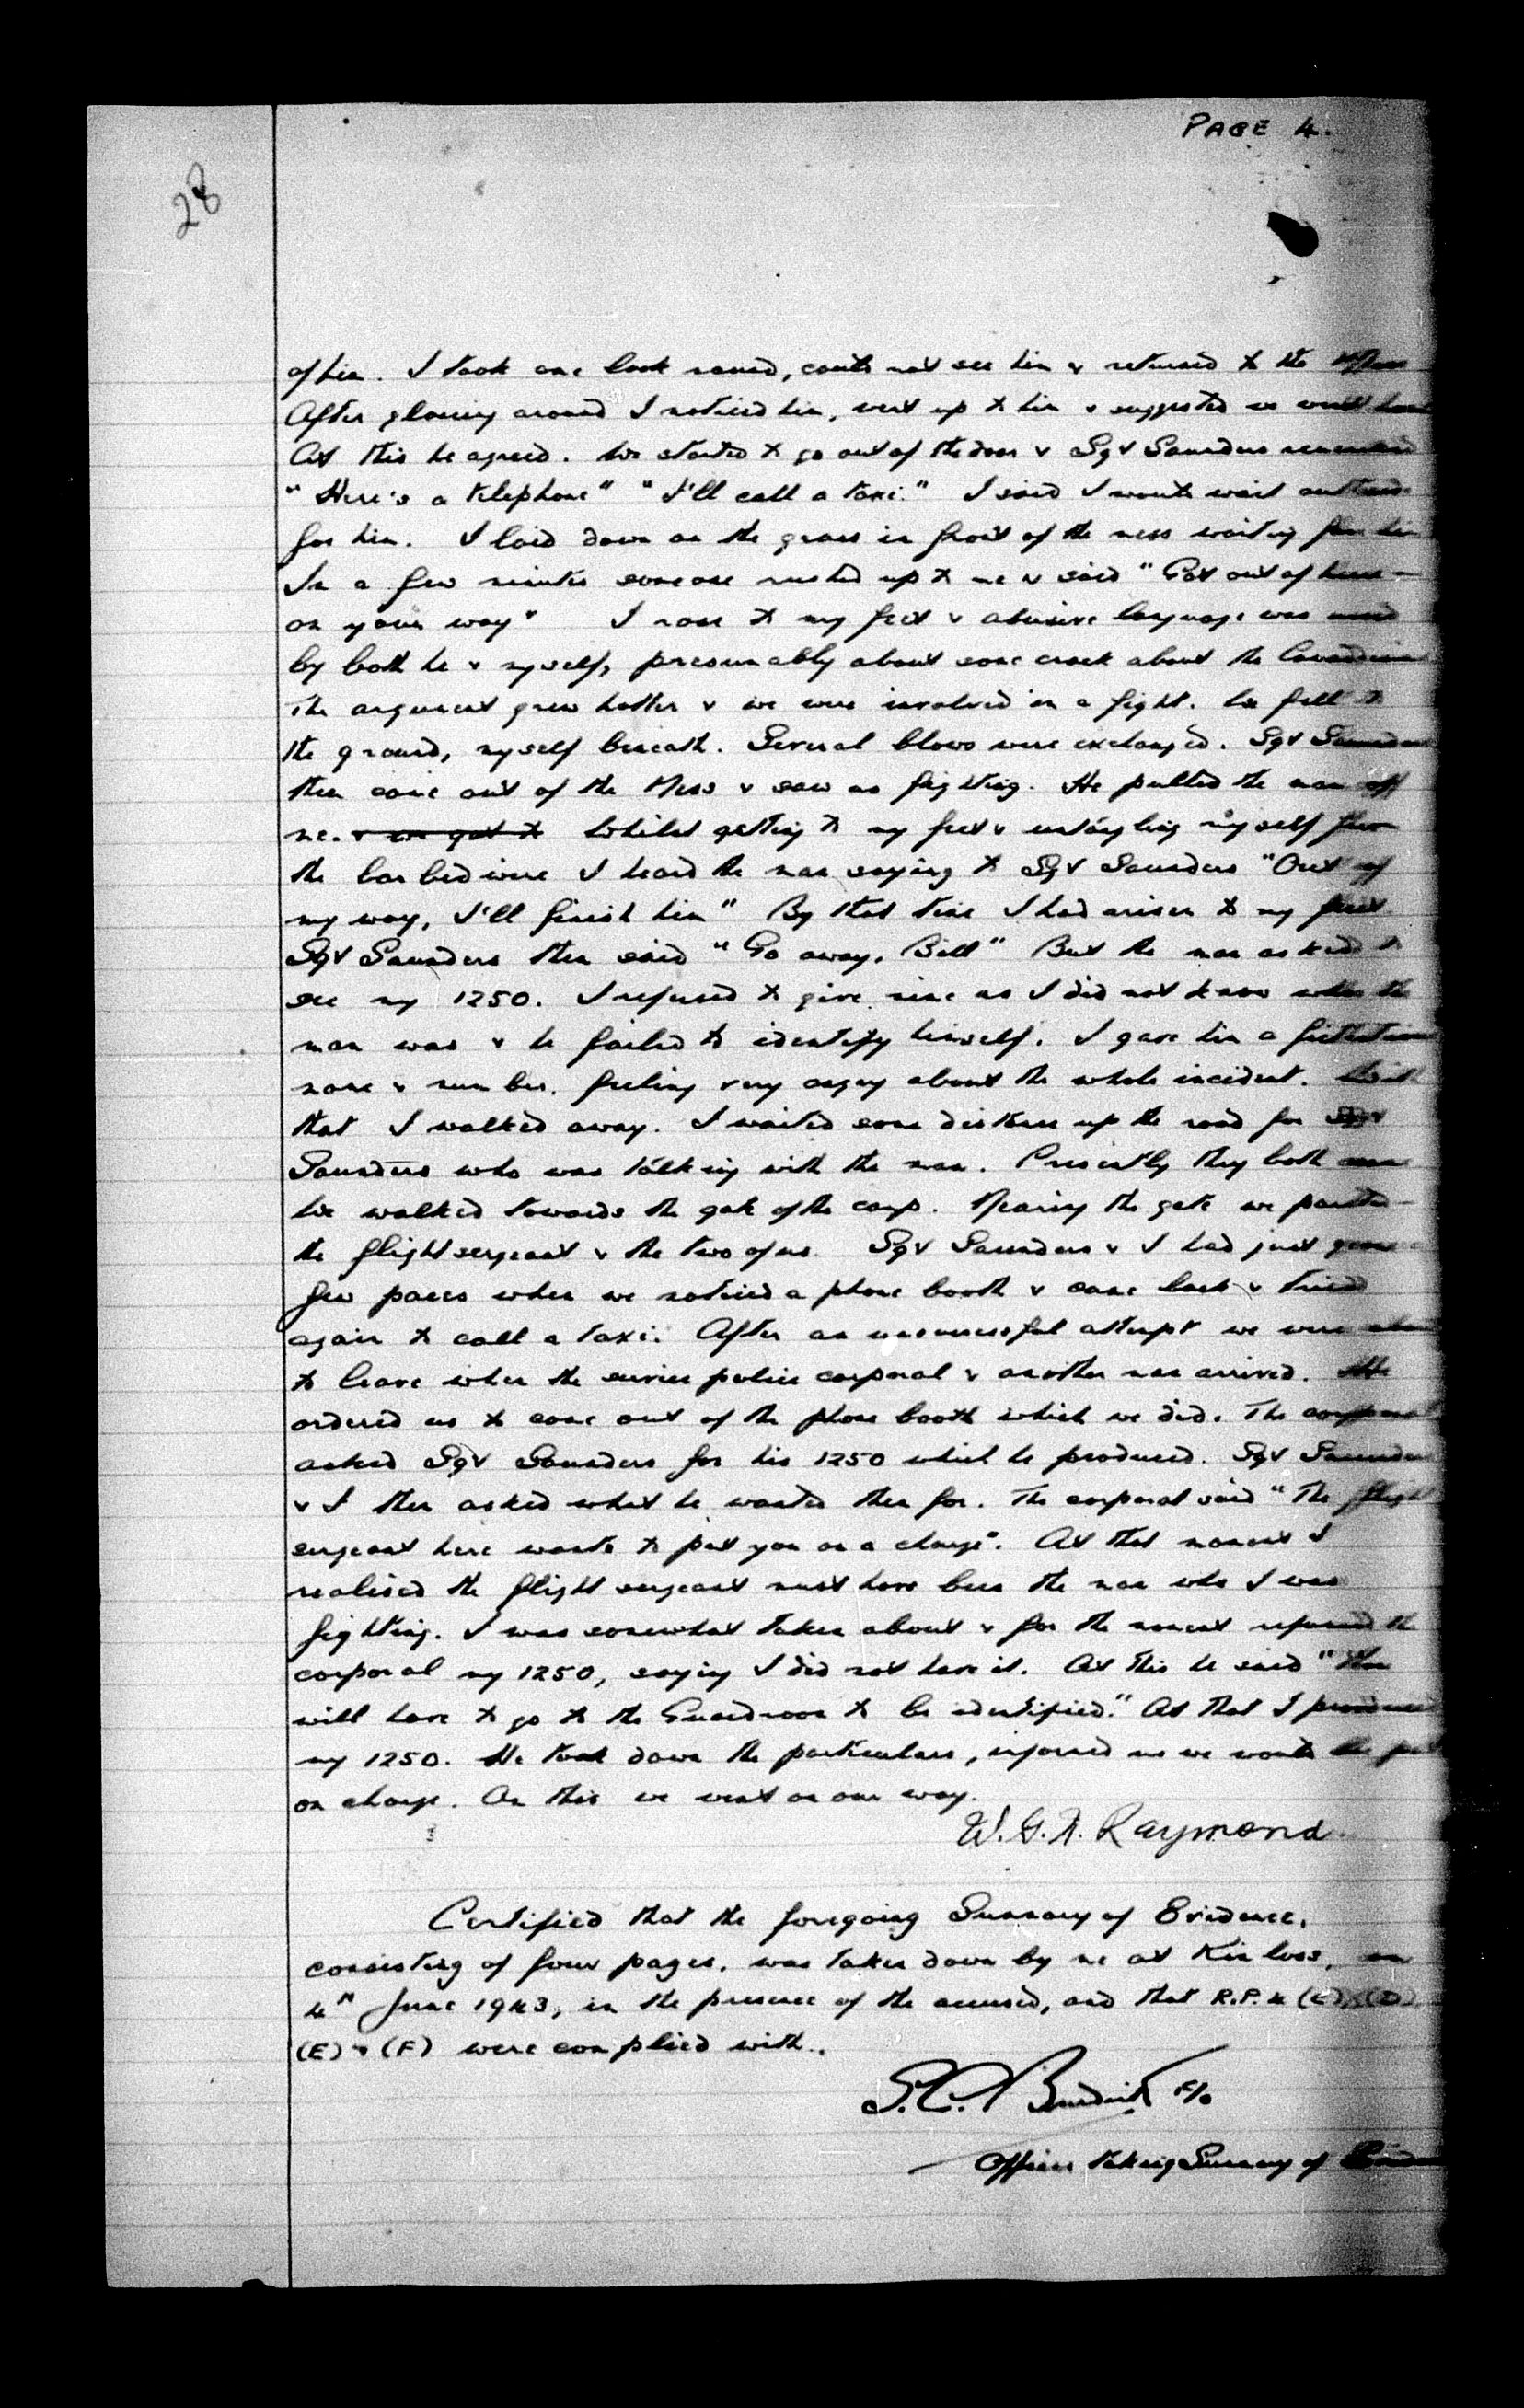 PAGE 4.
28
of him. I took one look round, could not see him & returned to the Mess
After glancing around I noticed him, went up to him & suggested we went home
At this he agreed. We started to go out of the door & Sgt Saunders remarked
"Here's a telephone" "I'll call a taxi." I said I would wait outside
for him. I laid down on the grass in front of the mess waiting for him
In a few minutes someone rushed up to me & said "Get out of here -
on your way" I rose to my feet & abusive language was used
by both he & myself, presumably about some crack about the Canadians
The argument grew hotter & we were involved in a fight. We fell to
the ground, myself beneath. Several blows were exchanged. Sgt Saunders
then came out of the Mess & saw us fighting. He pulled the man off
me. & we got to Whilst getting to my feet & untangling myself from
the barbed wire I heard the man saying to Sgt Saunders "Out of
my way, I'll finish him" By that time I had arisen to my feet.
Sgt Saunders then said "Go away, Bill" But the man asked to
see my 1250. I refused to give mine as I did not know who the
man was & he failed to identify himself. I gave him a fictitious
name & number. feeling very angry about the whole incident. With
that I walked away. I waited some distance up the road for Sgt
Saunders who was talking with the man. Presently they both came
We walked towards the gate of the camp. Nearing the gate we parted
the flight sergeant & the two of us. Sgt Saunders & I had just gone a
few paces when we noticed a phone booth & came back & tried
again to call a taxi. After an unsuccessful attempt we were about
to leave when the service police corporal & another man arrived. He
ordered us to come out of the phone booth which we did. The corporal
asked Sgt Saunders for his 1250 which he produced. Sgt Saunders
& I then asked what he wanted them for. The corporal said "The flight
sergeant here wants to put you on a charge". At that moment I
realised the flight sergeant must have been the man who I was
fighting. I was somewhat taken about & for the moment refused the
corporal my 1250, saying I did not have it. At this he said "You
will have to go to the Guardroom to be identified." At that I produced
my 1250. He took down the particulars, informed us we would be put
on charge. On this we went on our way.
W. G. A. Raymond.
Certified that the foregoing Summary of Evidence,
consisting of four pages, was taken down by me at Kinloss, on
4th June 1943, in the presence of the accused, and that R.P. 4 (C), (D),
(E) & (F) were complied with.
S.C. F/O
Officer taking Summary of Evidence